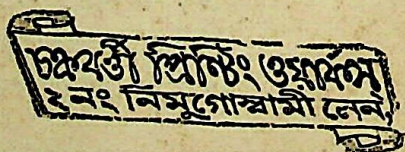 চক্রবর্ত্তী প্রিন্টিং ওয়ার্কস্
২ নং নিমুগোস্বামী লেন,